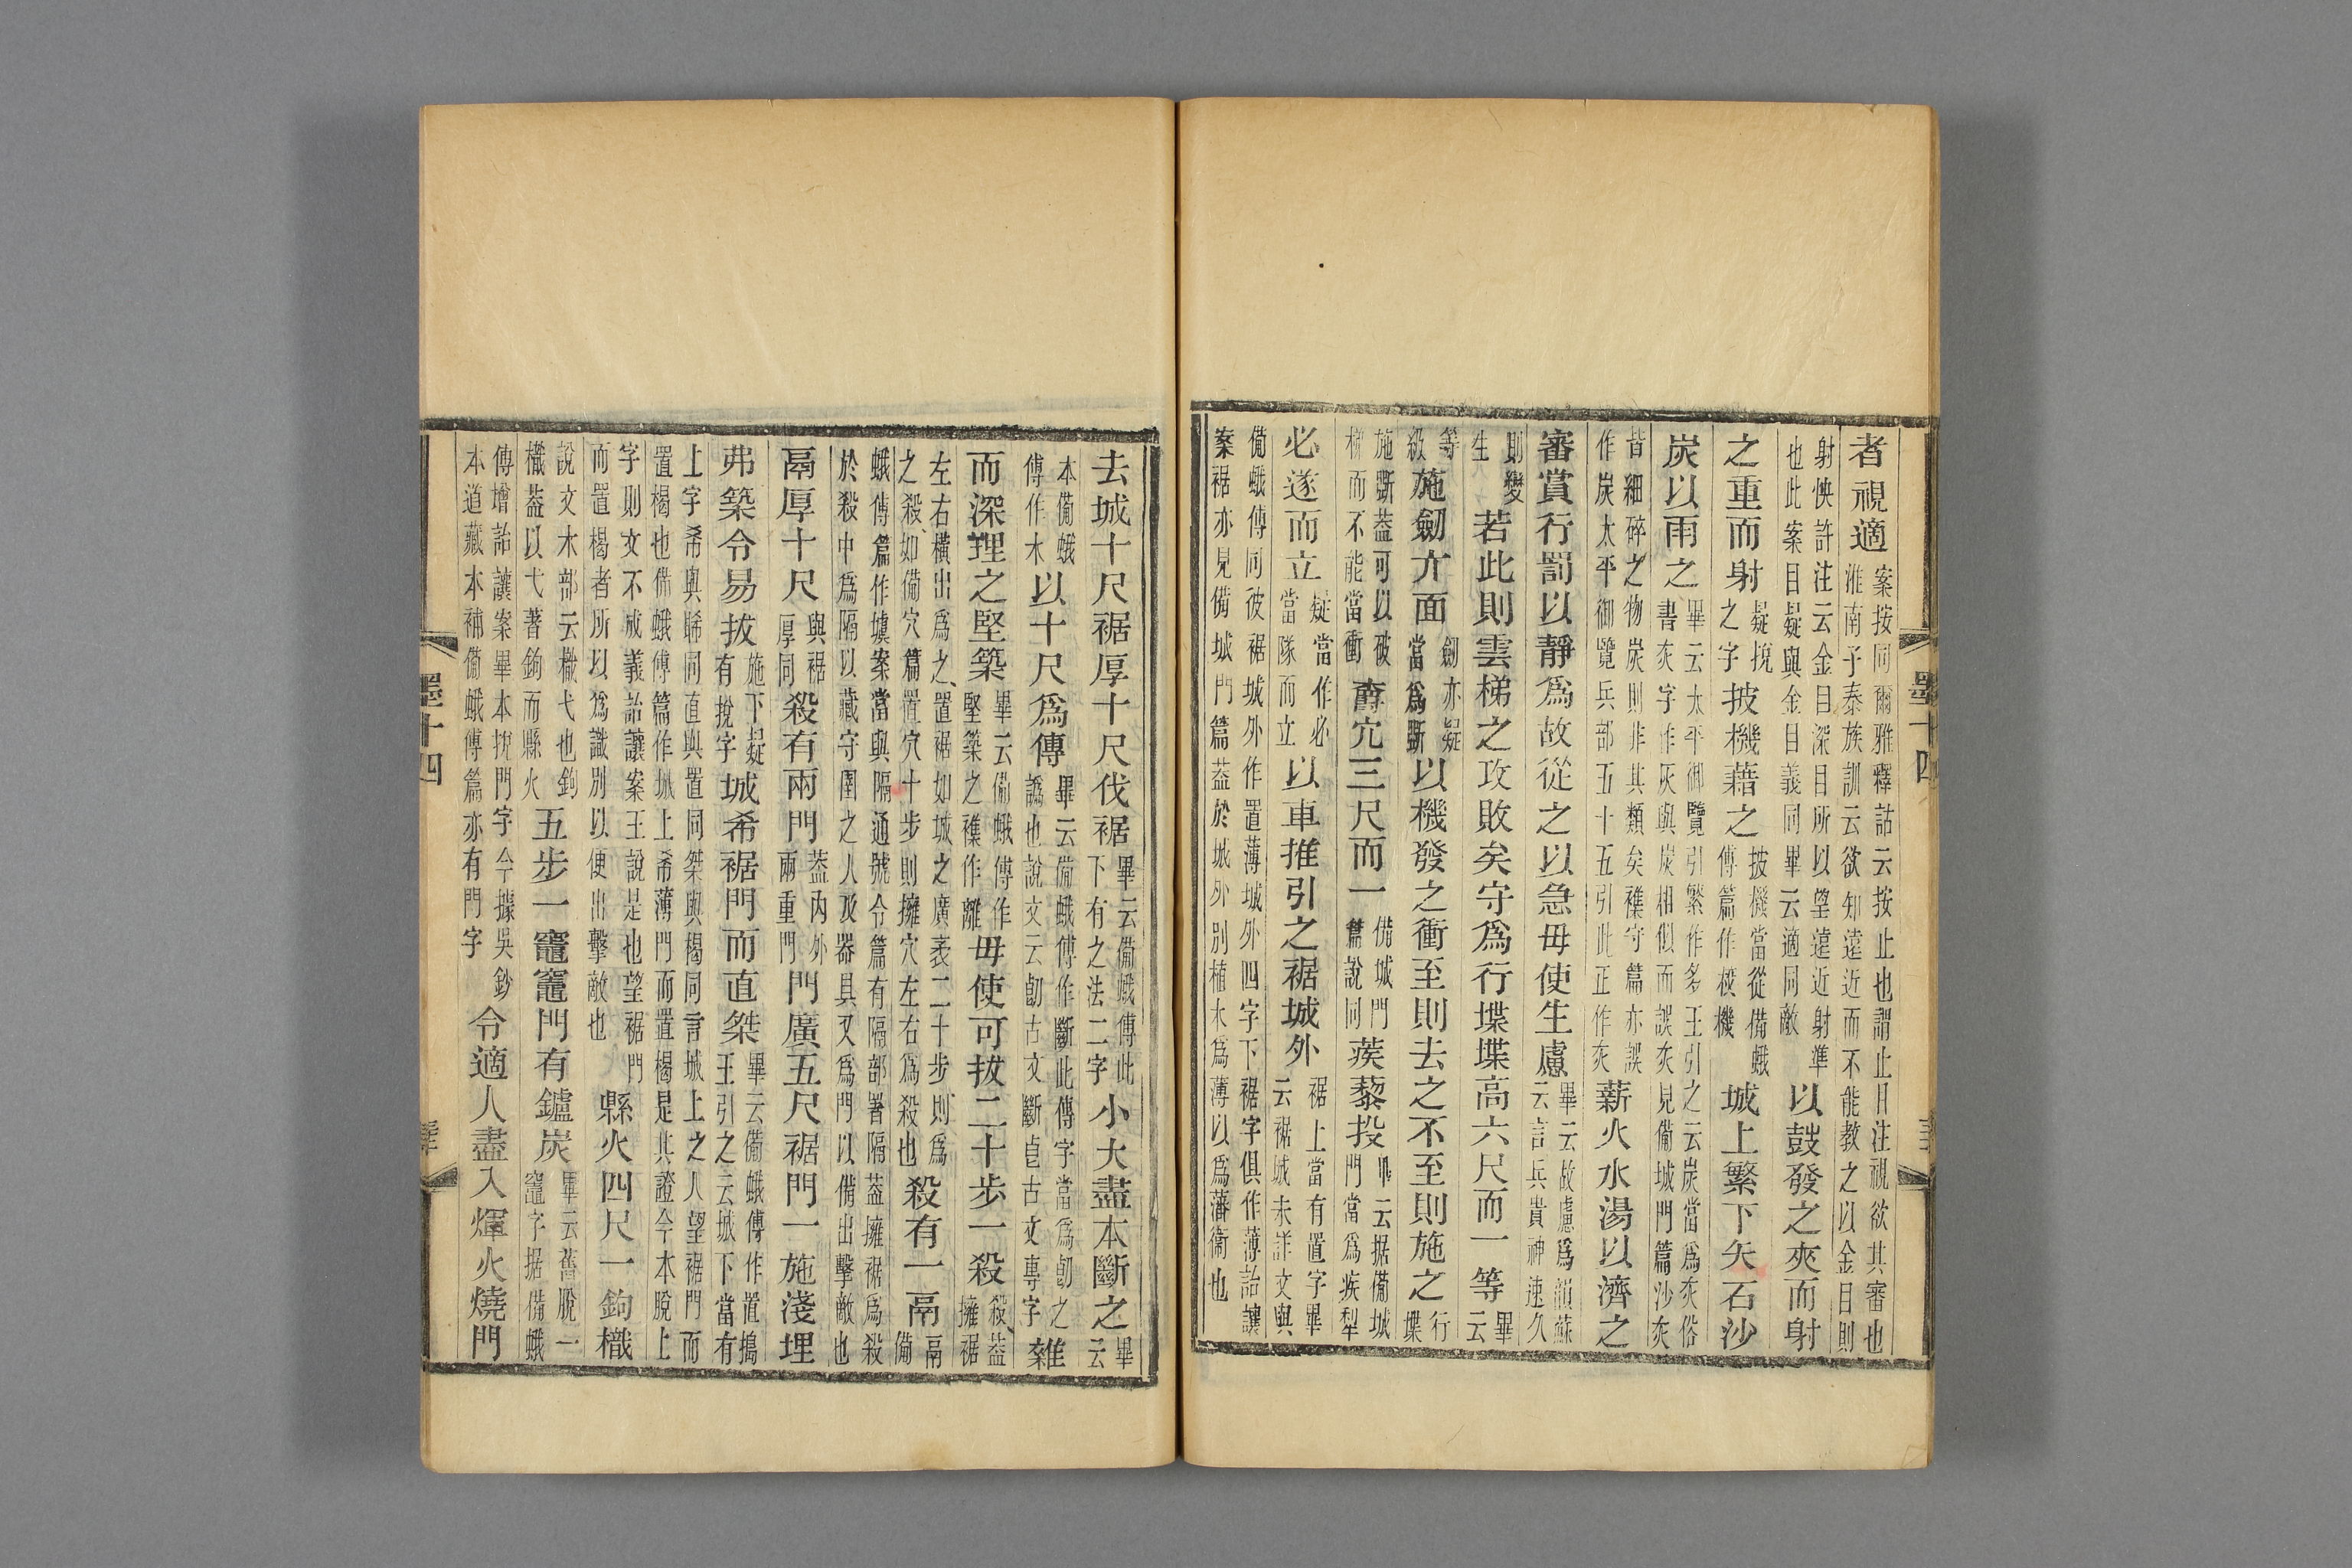 者視適案按同爾雅釋詁云按止也謂止目注視欲其審也淮南子泰族訓云欲知遠近而不能教之以金目則
射怏許注云金目深目所以望遠近射準也此案目疑與金目義同畢云適同敵以鼓發之夾而射
之重而射疑挩之字披機藉之披機當從備蛾傳篇作校機城上繁下矢石沙
炭以雨之畢云太平御覽引繁作多王引之云炭當爲灰俗書灰字作灰與炭相似而誤灰見備城門篇沙灰
皆細碎之物炭則非其類矣襍守篇亦誤作炭太平御覽兵部五十五引此正作灰薪火水湯以濟之
審賞行罰以靜爲故從之以急毋使生慮畢云故慮爲韻蘇云言兵貴神速久
則變生若此則雲梯之攻敗矣守爲行堞堞高六尺而一等畢云
等級施劒亣面劒亦疑當爲斲以機發之衝至則去之不至則施之行堞
施斲蓋可以破梯而不能當衝爵穴三尺而一備城門篇說同蒺藜投畢云据備城門當爲疾犁
必遂而立疑當作必當隊而立以車推引之裾城外裾上當有置字畢云裾城未詳文與
備蛾傳同彼裾城外作置薄城外四字下裾字俱作薄詒讓案裾亦見備城門篇蓋於城外別植木爲薄以爲藩衞也
墨十四
去城十尺裾厚十尺伐裾畢云備蛾傳此下有之法二字小大盡本斷之畢云
本備蛾傳作木以十尺爲傳畢云備蛾傳作斷此傳字當爲㔍之譌也說文云㔍古文斷𠧢古文專字雜
而深埋之堅築畢云備蛾傳作堅築之襍作離毋使可拔二十步一殺殺蓋擁裾
左右橫出爲之置裾如城之廣袤二十步則爲之殺如備穴篇置穴十步則擁穴左右爲殺也殺有一鬲鬲備
蛾傳篇作壙案當與隔通號令篇有隔部署隔蓋擁裾爲殺於殺中爲隔以藏守圉之人及器具又爲門以備出擊敵也
鬲厚十尺與裾厚同殺有兩門蓋內外兩重門門廣五尺裾門一施淺埋
弗築令易拔施下疑有挩字城希裾門而直桀畢云備蛾傳作置搗王引之云城下當有
上字希與睎同直與置同桀與楬同言城上之人望裾門而置楬也備蛾傳篇作城上希薄門而置楬是其證今本脫上
字則文不成義詒讓案王說是也望裾門而置楬者所以爲識別以便出擊敵也縣火四尺一鉤樴
說文木部云樴弋也鉤樴蓋以弋著鉤而縣火五步一竈竈門有鑪炭畢云舊脫一竈字据備蛾
傳增詒讓案畢本挩門字今據吳鈔本道藏本補備蛾傳篇亦有門字令適人盡入煇火燒門
墨十四